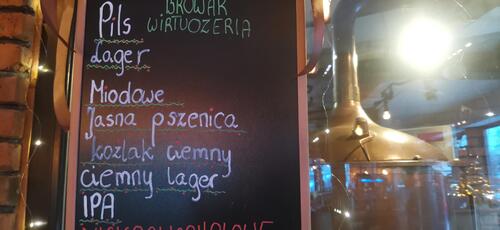 BROWAR
WIRTUOZERIA
Pils
Lager
Miodowe
Jasna pszenica
koźlak ciemny
ciemny lager
IPA